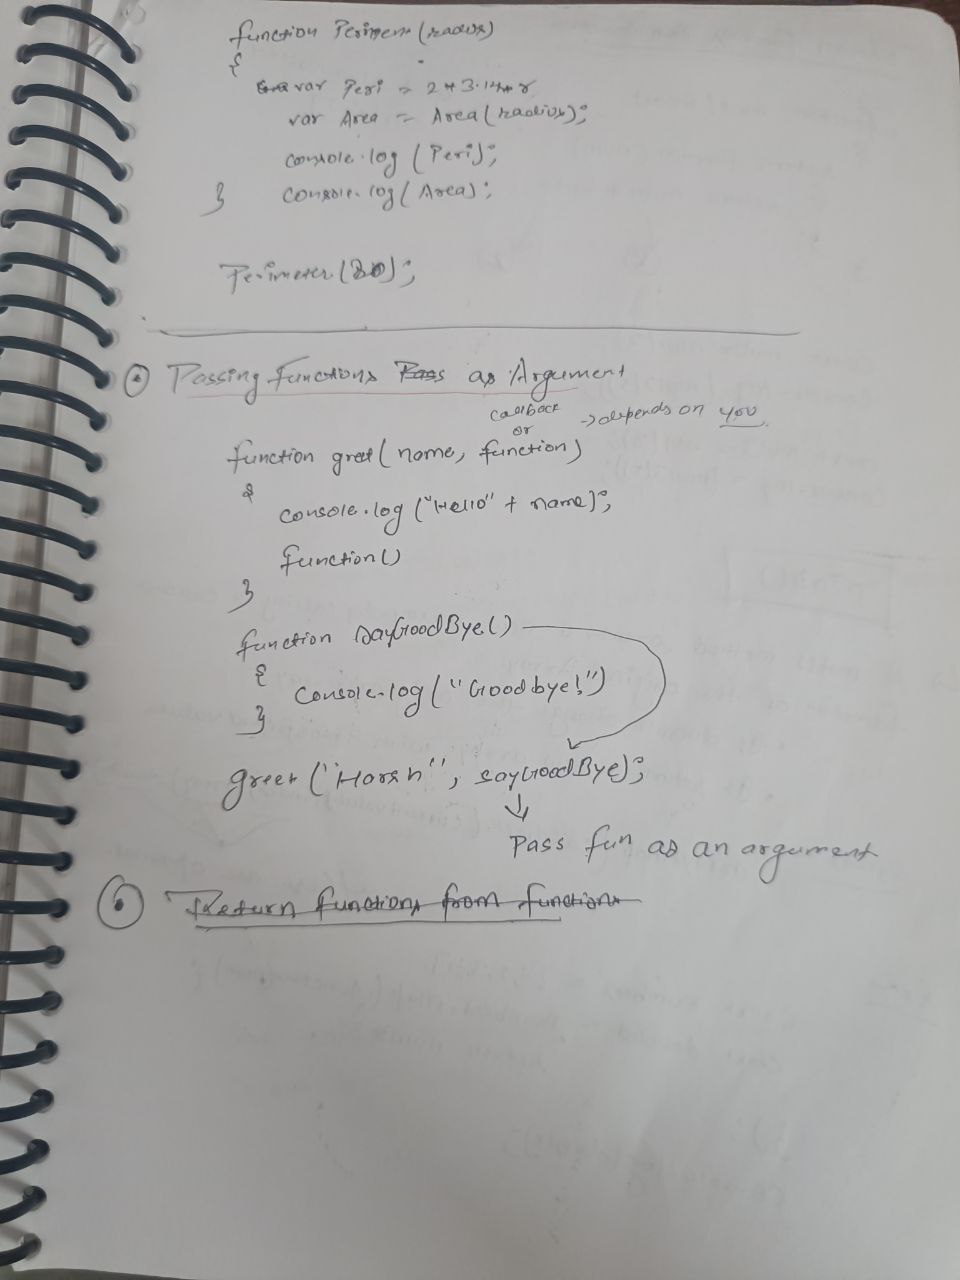 function Perimem (radius)
{
var Peri = 2 * 3.14 * r
var Area = Area (radius);
console.log (Peri);
} console.log (Area);
Perimeter (30);
Passing Functions Pass as Argument
callback
or → depends on you.
function greet (name, function)
{
console.log ("Hello" + name);
function ()
}
function SayGoodBye ()
{
console.log ("Goodbye!")
}
greet ("Harsh", sayGoodBye);
Pass fun as an argument
Return functions from functions